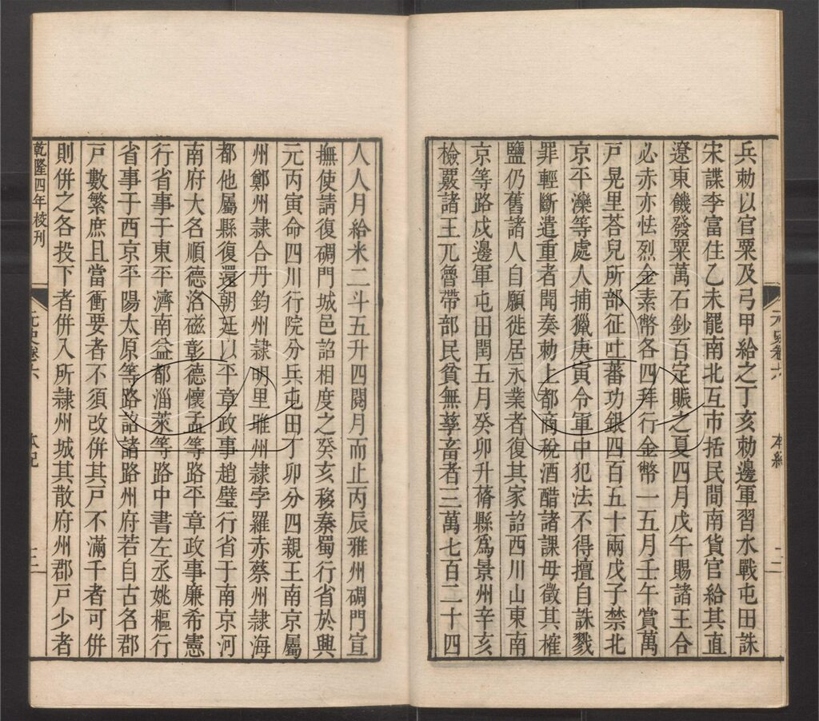 兵勅以官粟及弓甲給之丁亥勅邊軍習水戰屯田誅
宋諜李富住乙未罷南北互市括民間南貨官給其直
遼東饑發粟萬石鈔百定賑之夏四月戊午賜諸王合
必赤亦怯烈金素幣各四拜行金幣一五月壬午賞萬
戸晃里荅兒所部征吐蕃功銀四百五十兩戊子禁北
京平灤等處人捕獵庚寅令軍中犯法不得擅自誅戮
罪輕斷遣重者聞奏勅上都商稅酒醋諸課毋徵其榷
鹽仍舊諸人自願徙居永業者復其家詔西川山東南
京等路戍邊軍屯田閏五月癸卯升蓨縣爲景州辛亥
檢覈諸王兀魯帶部民貧無孳畜者三萬七百二十四
元史卷六 本紀 二
人人月給米二斗五升四閱月而止丙辰雅州碉門宣
撫使請復碉門城邑詔相度之癸亥移秦蜀行省於興
元丙寅命四川行院分兵屯田丁卯分四親王南京屬
州鄭州隷合丹鈞州隷明里睢州隷孛羅赤蔡州隷海
都他屬縣復還朝廷以平章政事趙璧行省于南京河
南府大名順德洺磁彰德懷孟等路平章政事廉希憲
行省事于東平濟南益都淄萊等路中書左丞姚樞行
省事于西京平陽太原等路詔諸路州府若自古名郡
戸數繁庶且當衝要者不須改併其戸不滿千者可併
則併之各投下者併入所隷州城其散府州郡戸少者
乾隆四年校刊 元史卷六 本紀